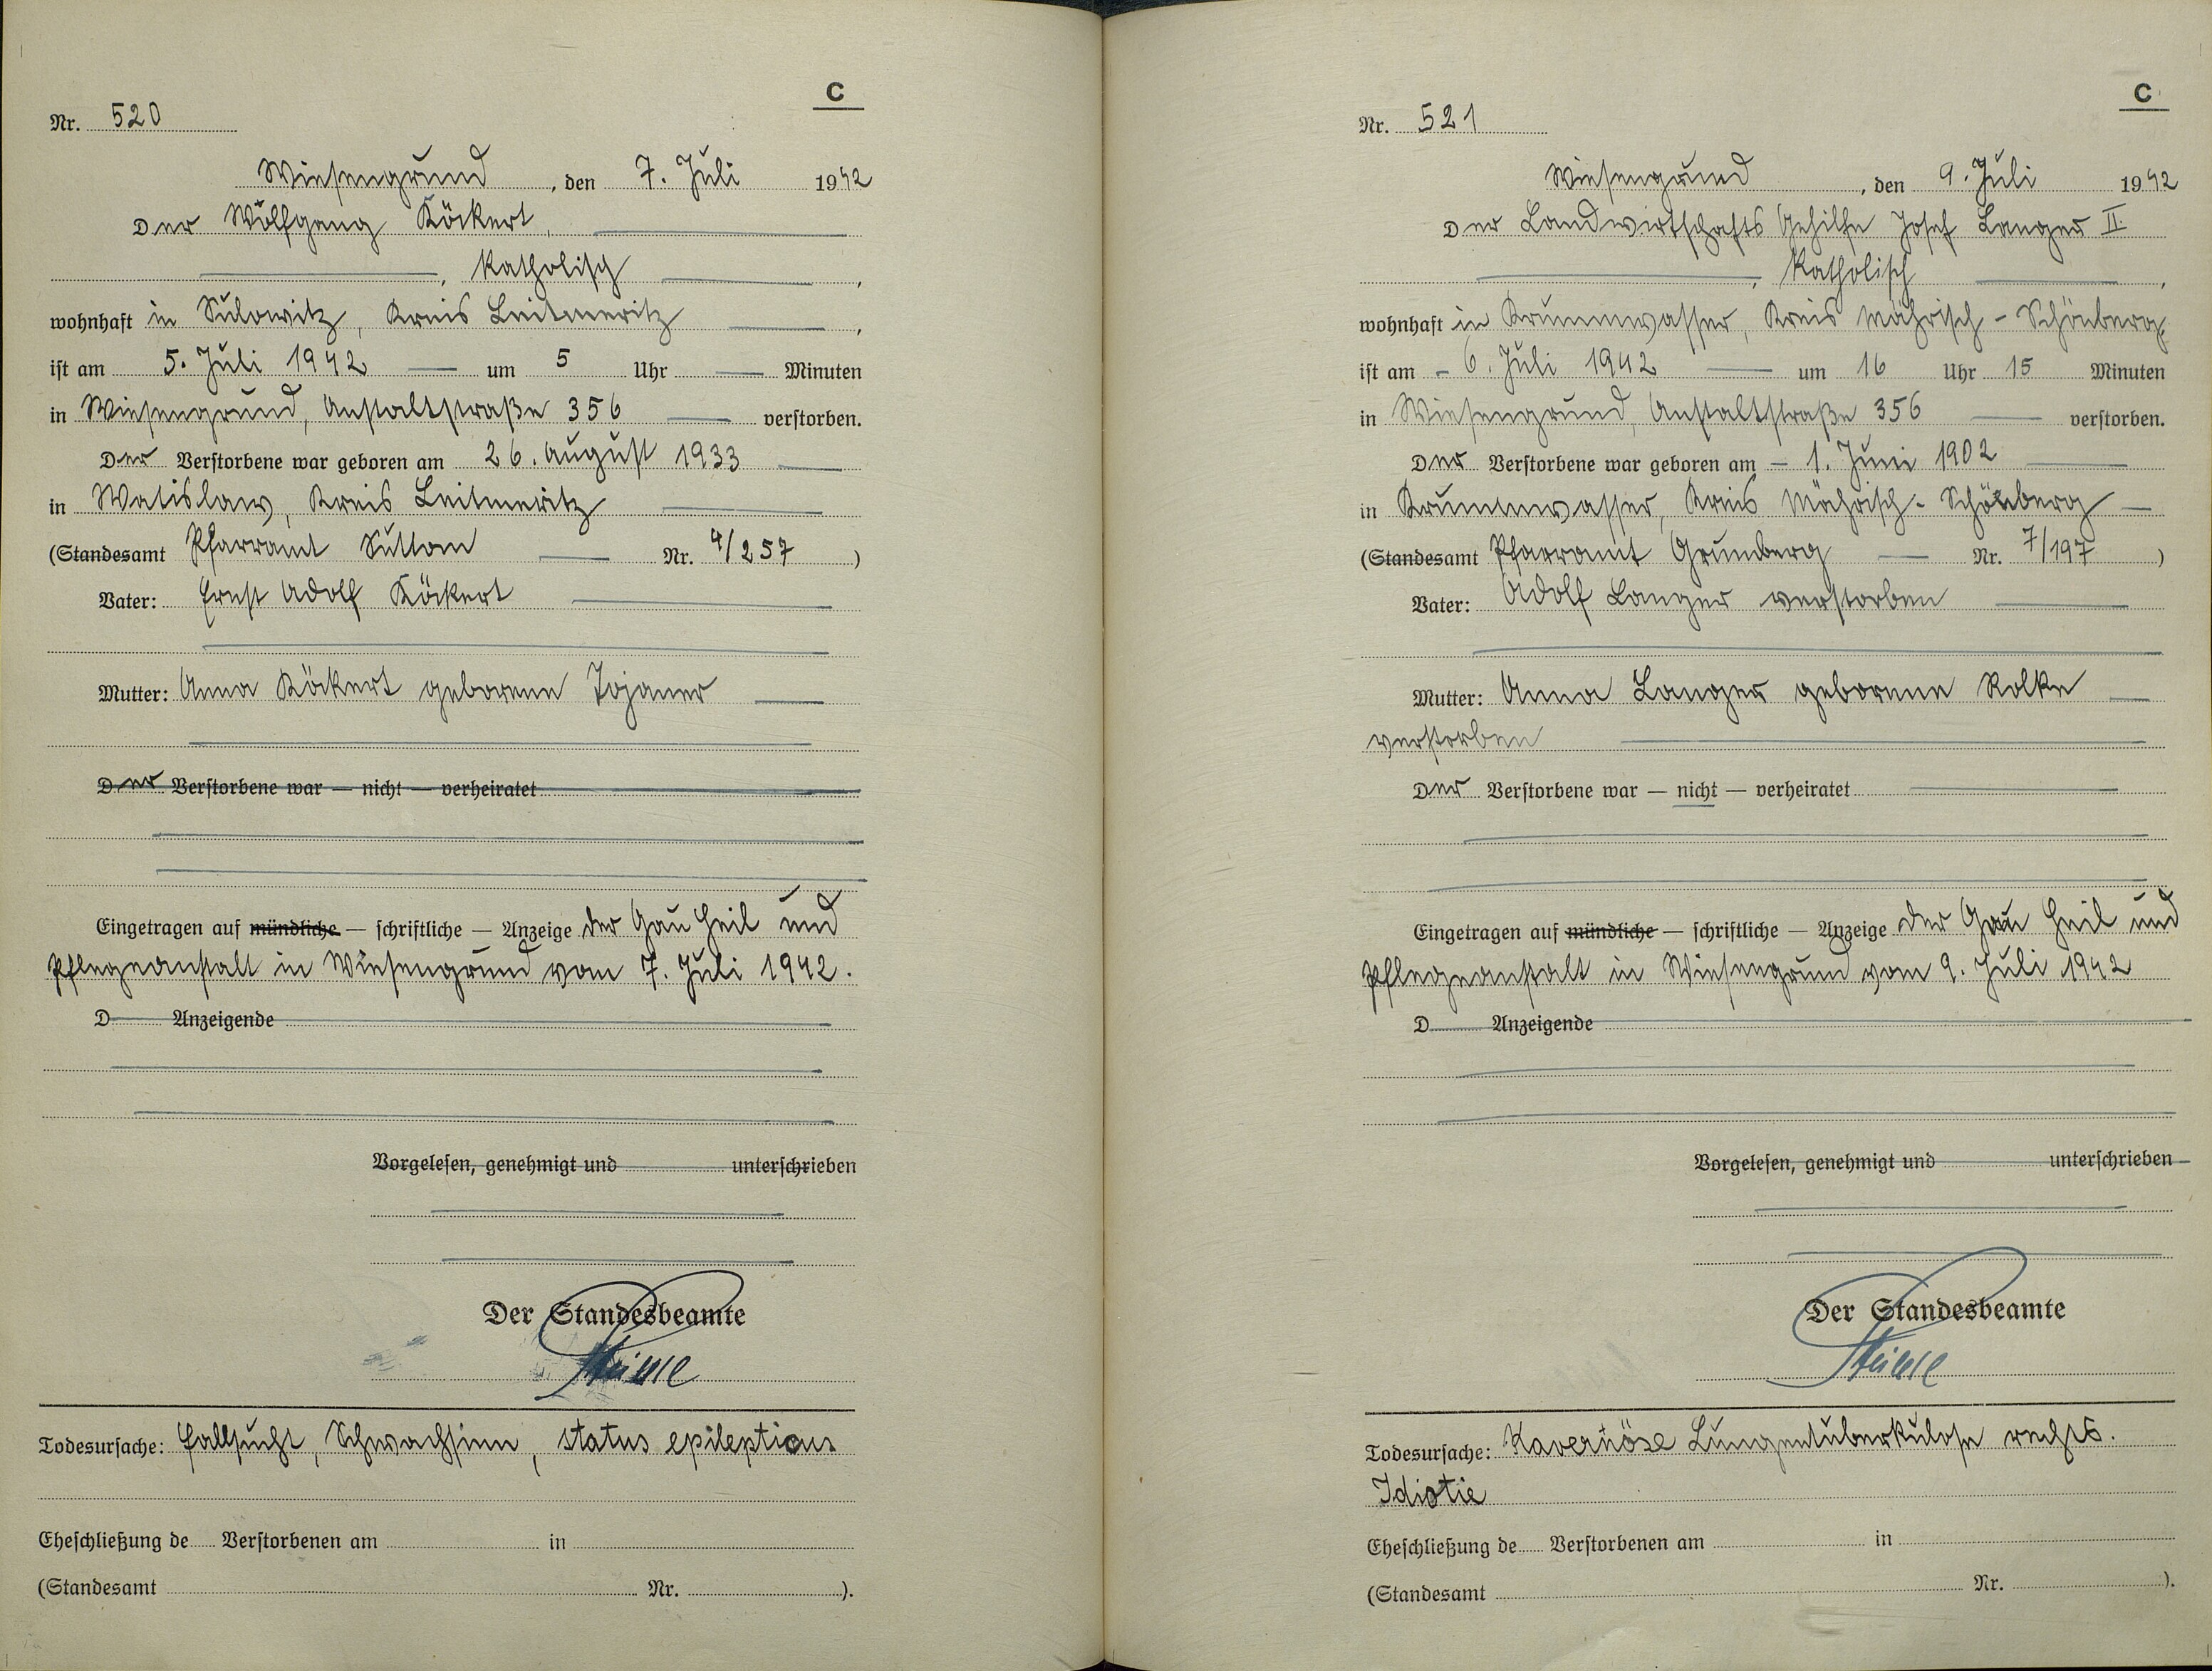 C
Nr. 520
Wiesengrund, den 7. Juli 1942
Der Wolfgang Köckert,
, katholisch ,
wohnhaft in Sulowitz, Kreis Leitmeritz ,
ist am 5. Juli 1942 — um 5 Uhr — Minuten
in Wiesengrund, Anstaltstraße 356 — verstorben.
Der Verstorbene war geboren am 26. August 1933
in Watislaw, Kreis Leitmeritz
(Standesamt Pfarramt Suttom — Nr. 4/257 )
Vater: Ernst Adolf Köckert
Mutter: Anna Köckert geborene
Der Verstorbene war — nicht — verheiratet
Eingetragen auf mündliche — schriftliche — Anzeige der Gau Heil und
Pflegeanstalt in Wiesengrund vom 7. Juli 1942.
D Anzeigende
Vorgelesen, genehmigt und unterschrieben
Der Standesbeamte
Todesursache: Fallsucht, Schwachsinn, status epilepticus
Eheschließung de Verstorbenen am in
(Standesamt Nr. ).
C
Nr. 521
Wiesengrund, den 9. Juli 1942
Der Landwirtschafts Gehilfe Josef Langer II
, katholisch ,
wohnhaft in Krummwasser, Kreis Mährisch-Schönberg,
ist am - 6. Juli 1942 — um 16 Uhr 15 Minuten
in Wiesengrund, Anstaltstraße 356 — verstorben.
Der Verstorbene war geboren am - 1. Juni 1902
in Krummwasser, Kreis Mährisch-Schönberg —
(Standesamt Pfarramt Grumberg — Nr. 7/197 )
Vater: Adolf Langer verstorben
Mutter: Anna Langer geborene Rolke
verstorben
Der Verstorbene war — nicht — verheiratet
Eingetragen auf mündliche — schriftliche — Anzeige der Gau Heil und
Pflegeanstalt in Wiesengrund vom 9. Juli 1942
D Anzeigende
Vorgelesen, genehmigt und unterschrieben
Der Standesbeamte
Todesursache: Kavernöse Lungentuberkulose rechts.
Idiotie
Eheschließung de Verstorbenen am in
(Standesamt Nr. ).